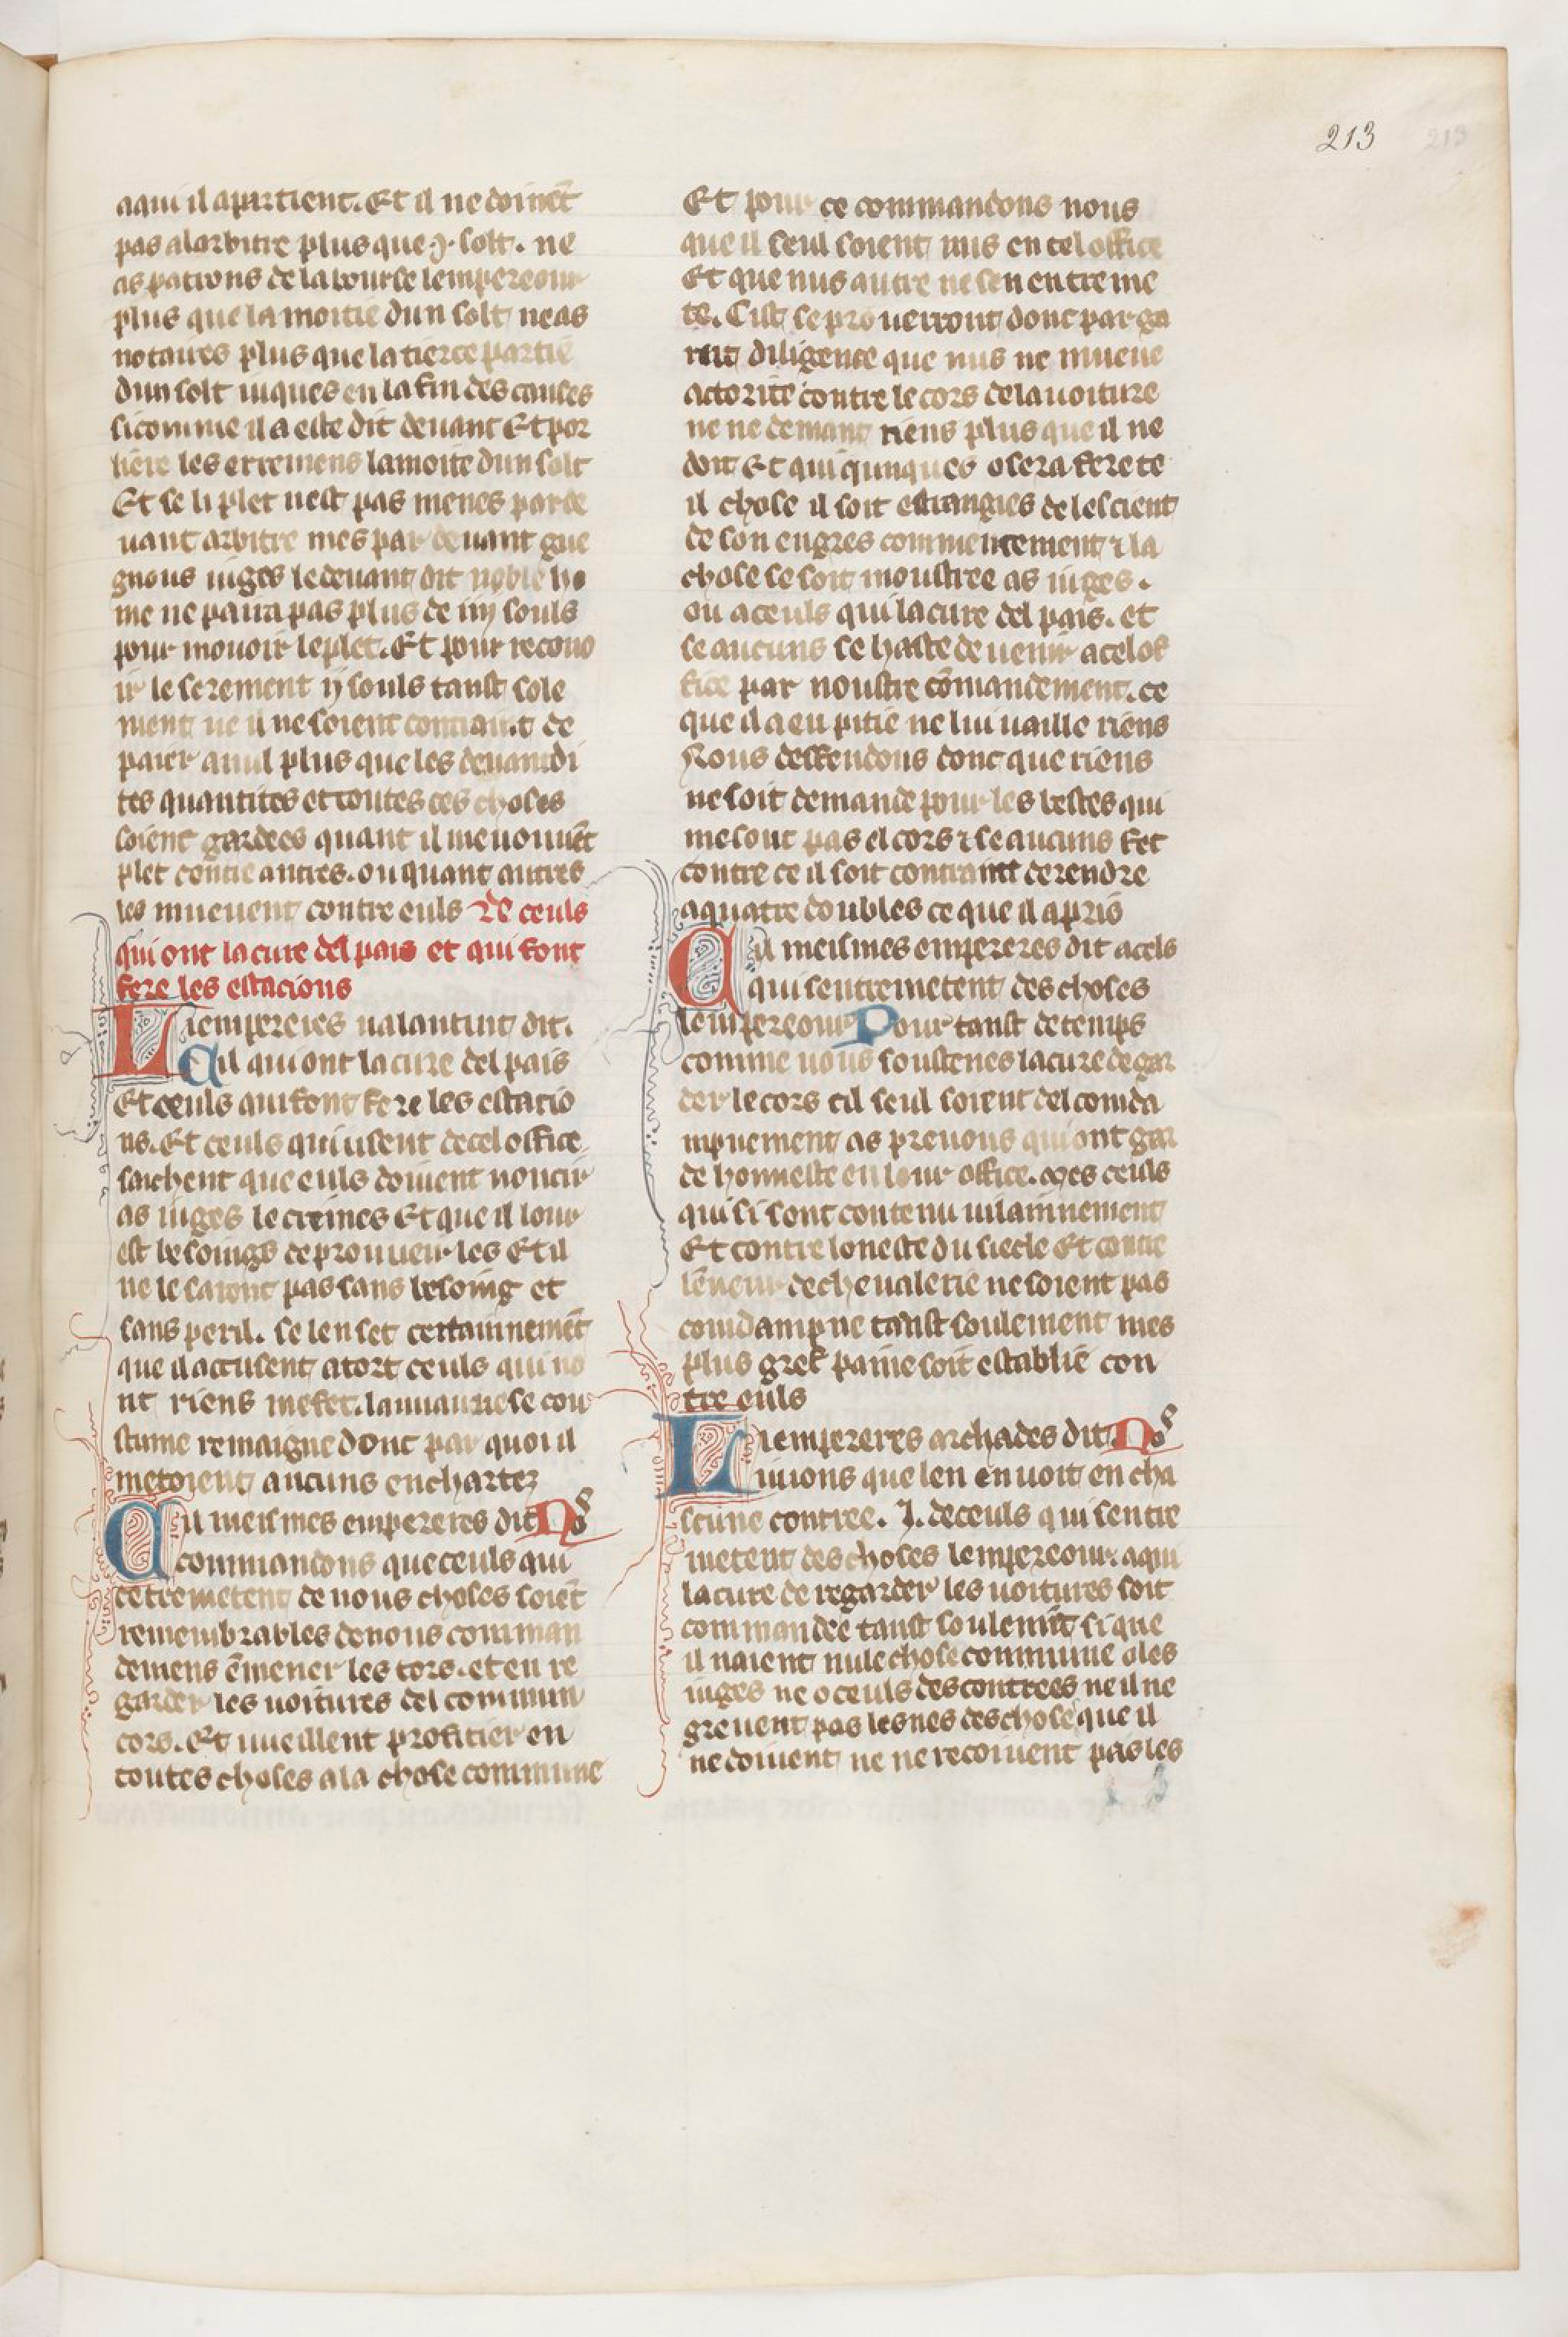 213
aqui il apartient. Et il ne doinēt
pas al arbitre plus que .j. solt. ne
as patrons de la bourse lempereour
plus que la moitie dun solt ne as
notaires plus que la tierce partie
dun solt iuques en la fin des causes
si comme il a este dit deuant Et por
liere les erremens la moite dun solt
Et se li plet nest pas menes parde
uant arbitre mes par deuant gue
gnous iuges le deuant dit noble ho
me ne paira pas plus de iiij souls
pour mouoir le plet. Et pour recouo
ir le serement ij souls tanst sole
ment ne il ne soient contraint de
paier a nul plus que les deuantdi
tes quantites et toutes ces choses
soient gardees quant il meuoiuēt
plet contre autres. ou quant autres
les mueuent contre euls De ceuls
qui ont la cure del pais et qui font
fere les estacions
Li empereres ualantint dit.
Cil qui ont la cure del pais
Et ceuls qui font fere les estacio
ns. Et ceuls qui usent de cel office
sachent que euls doiuent noncir
as iuges le creimes Et que il lour
est besoings de prouueir les Et il
ne le saront pas sans besoing et
sans peril. se len set certainnemēt
que il accusent a tort ceuls qui no
nt riens mefet. la mauuese cou
stume remaigne donc par quoi il
metoient aucuns en chartez
Cil meismes empereres dit Nꝰ
commandons que ceuls qui
cetremetent de nous choses soiēt
remembrables de nous comman
demens ēmener les cors. et en re
garder les uoitures del commun
cors. Et uueillent profitier en
toutes choses a la chose commune
Et pour ce commandons nous
que il seul soient mis en cel office
Et que nus autre ne sen entreme
te. Cist se prouerront donc par ga
rnt diligence que nus ne mueue
actorite contre le cors de la uoiture
ne ne demant riens plus que il ne
doit Et qui qunques osera fere te
il chose il soit estrangies de lescient
de son engres commencement ⁊ la
chose se soit moustree as iuges.
ou a ceuls qui la cure del pais. et
se aucuns se haste de uenir a cel of
fice par noustre cōmandement. ce
que il a eu pitie ne lui uaille riens
Nous deffendons donc que riens
ne soit demande pour les bestes qui
me sont pas el cors ⁊ se aucuns fet
contre ce il soit contraint de rendre
a quatre doubles ce que il a pris
Cil meismes empereres dit a cels
qui sentremetent des choses
lempereour Pour tanst de temps
comme nous soustenes la cure de gar
der le cors cil seul soient del comda
mpnement as preuons qui ont gar
de honneste en lour office. Mes ceuls
qui si sont contenu uilainnement
Et contre loneste du siecle Et contre
lēneur de cheualerie ne soient pas
comdampne tanst soulement mes
plus gref paine soit establie con
tre euls
Li empereres archades dit Nꝰ
uuions que len enuoit en cha
scune contree. J. de ceuls qui sentre
metent des choses lempereour. a qui
la cure de regarder les uoitures soit
commandee tanst soulemēt si que
il naient nule chose commune o les
iuges ne o ceuls des contrees ne il ne
greuent pas les nes des chose que il
ne doiuent ne ne recoiuent pas les